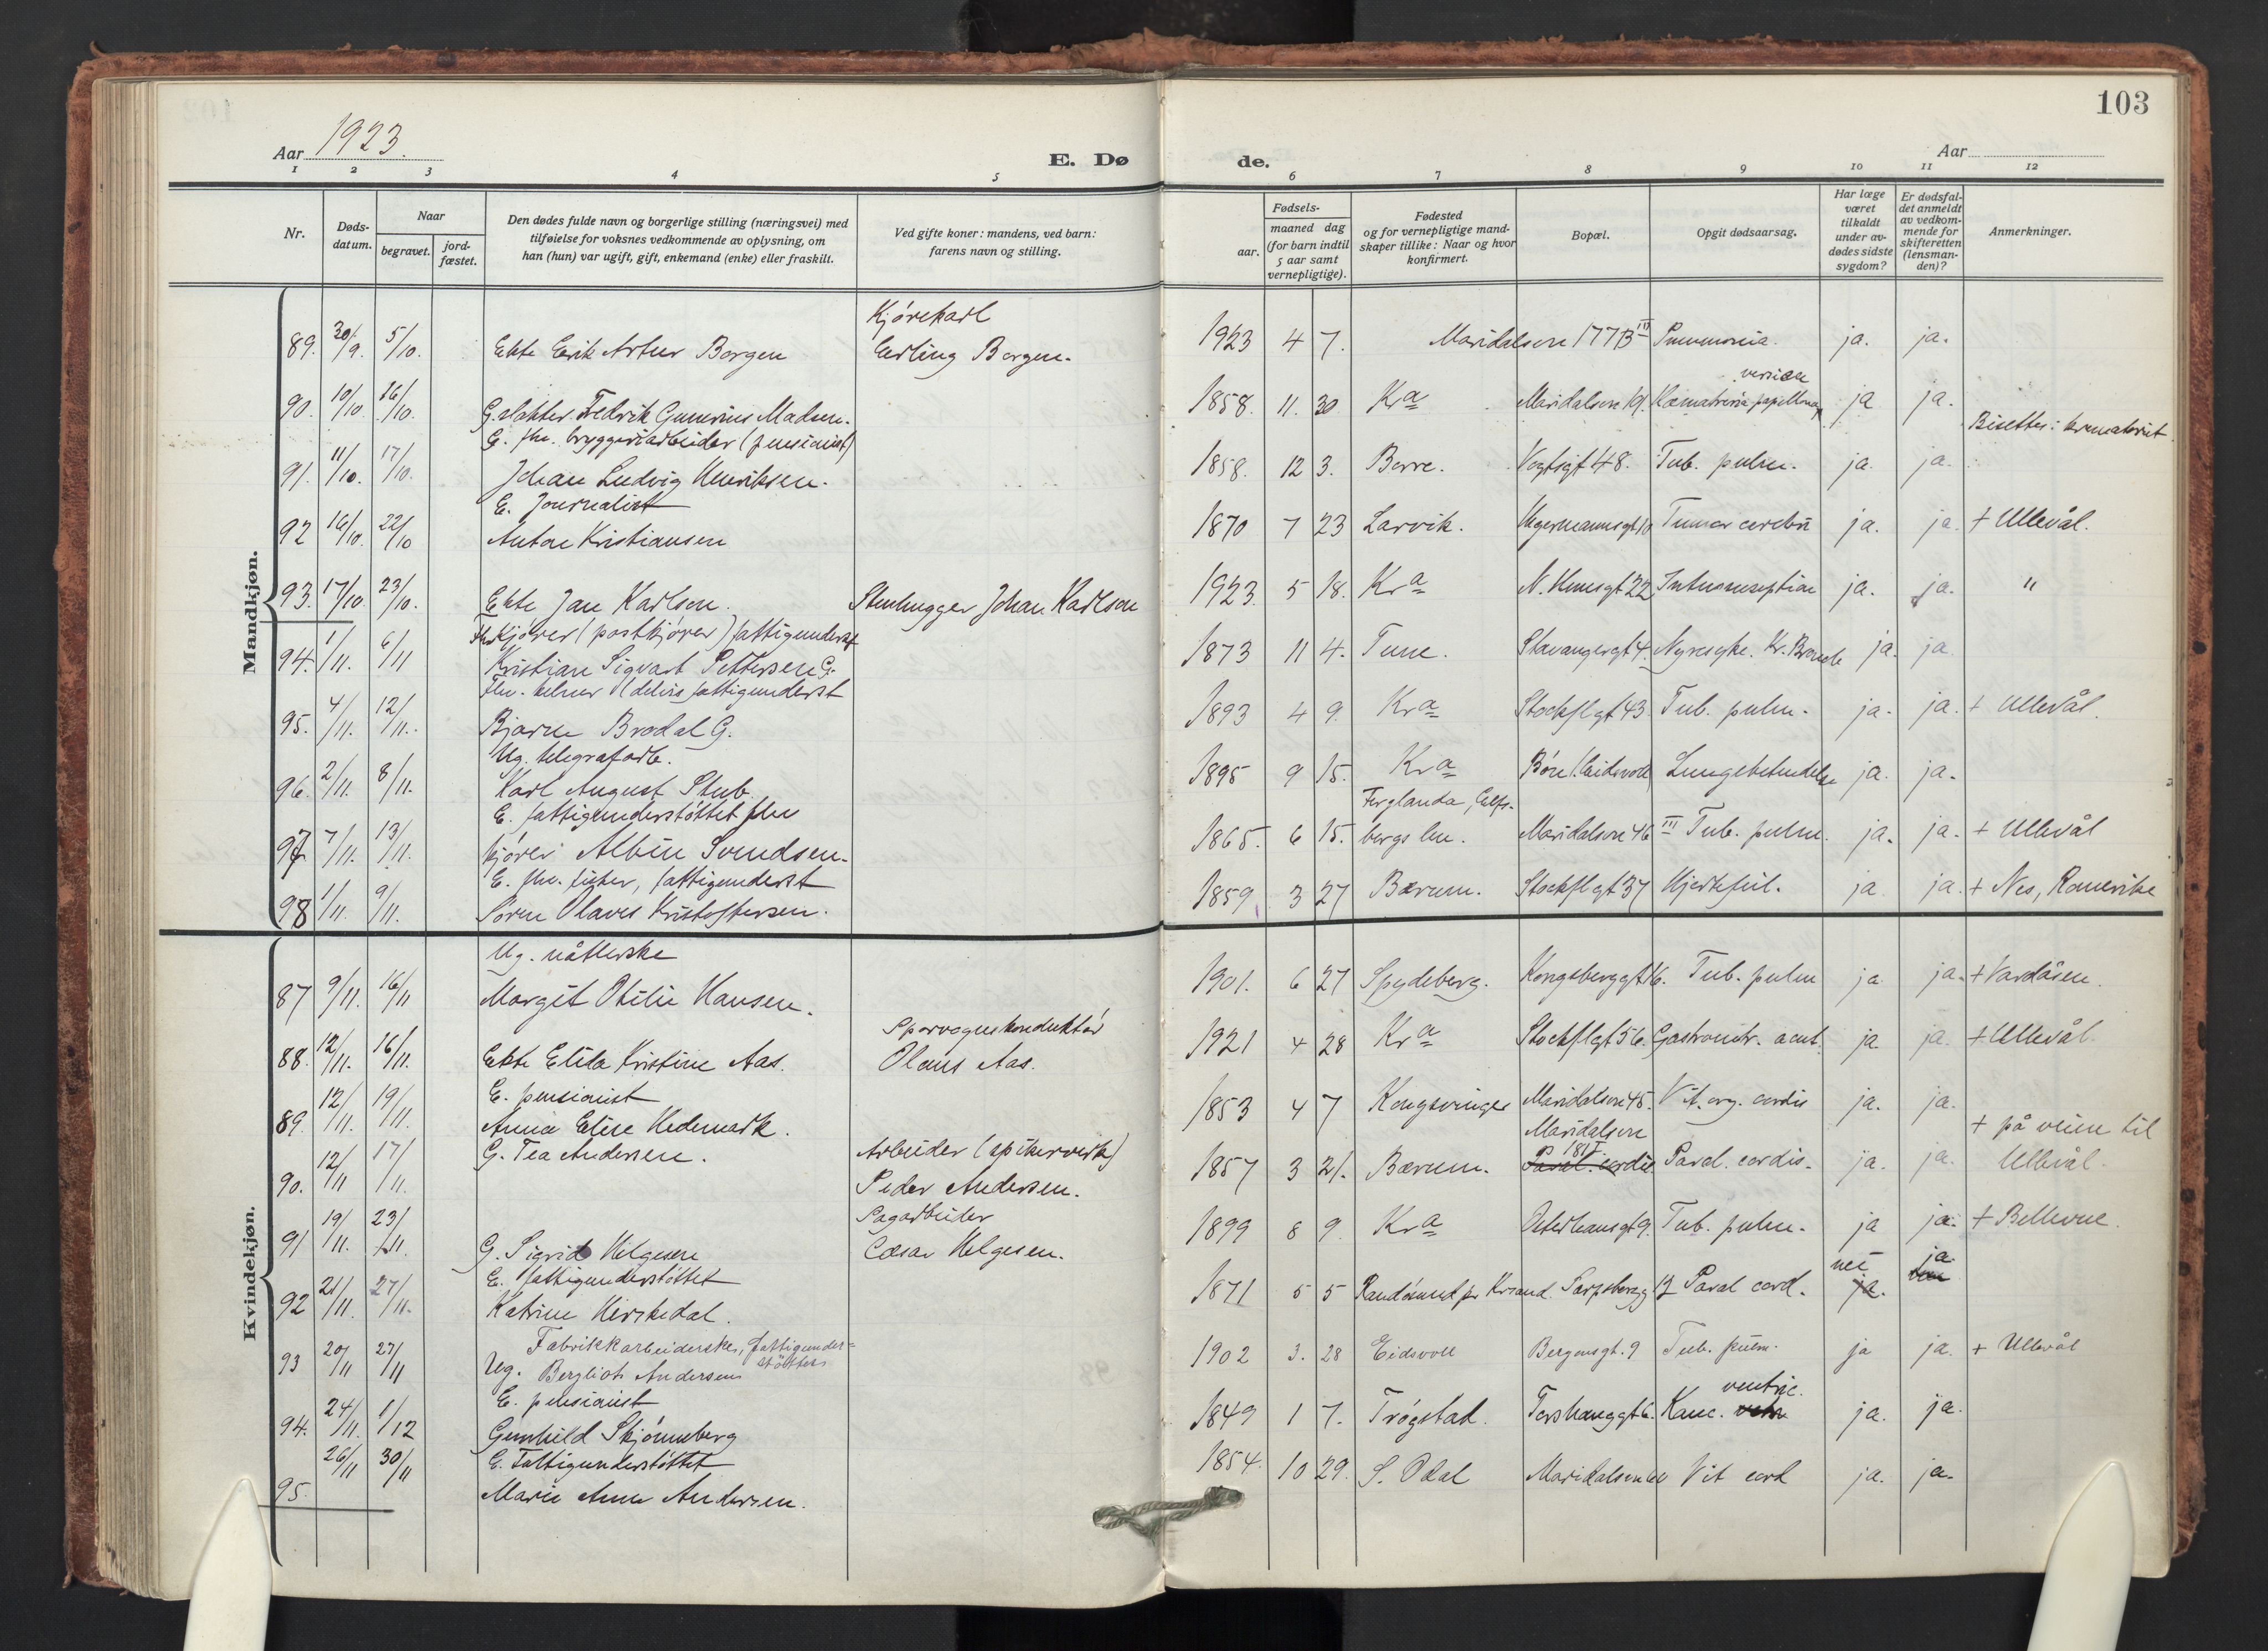 103
Aar 1923.
E. Dø
de.
Aar
1 2 3 4 5 6 7 8 9 10 11 12
Nr.
Døds-
datum.
Naar
begravet.
jord-
fæstet.
Den dødes fulde navn og borgerlige stilling (næringsvei) med
tilføielse for voksnes vedkommende av oplysning, om
han (hun) var ugift, gift, enkemand (enke) eller fraskilt.
Ved gifte koner: mandens, ved barn:
farens navn og stilling.
Fødsels-
aar.
maaned dag
(for barn indtil
5 aar samt
vernepligtige).
Fødested
og for vernepligtige mand-
skaper tillike: Naar og hvor
konfirmert.
Bopæl.
Opgit dødsaarsag.
Har læge
været
tilkaldt
under av-
dødes sidste
sygdom?
Er dødsfal-
det anmeldt
av vedkom-
mende for
skifteretten
(lensman-
den)?
Anmerkninger.
Mandkjøn.
Kjørekarl
89. 30/9. 5/10. Ekte Erik Artur Borgen Erling Borgen. 1923 4 7. Maridalsvn 177B III Pneumonia. ja. ja.
vesicae
90. 10/10. 16/10. G. Fredrik Gunerius Madsen. 1858. 11. 30 Kra Maridalsvn 19. papilloma ja ja.
Bisettes i krematoriet
G. fhv. bryggeriarbeider (pensionist)
91. 11/10. 17/10. Johan Ludvig Henriksen. 1858. 12 3. Borre. Vogtsgt 48. Tub. pulm. ja. ja.
E. Journalist
92 16/10. 22/10 Anton Kristiansen 1870 7 23 Larvik. Tumor cerebri ja. ja. + Ullevål.
93. 17/10. 23/10. Ekte Jan Karlson. Stenhugger Johan Karlson 1923. 5 18. Kra N. 22 Intussusception ja. ja. "
Fhv Kjører (postkjører) fattigunderst
94. 1/11. 6/11 Kristian Sigvart Pettersen G. 1873 11 4. Tune. Stavangergt 4. Nyresyke. Kr. ja. ja.
Fhv. kelner (delvis fattigunderst
95. 4/11. 12/11. Bjarne Brodal G. 1893 4 9. Kra Stockflgt 43. Tub. pulm. ja. ja. + Ullevål.
Ug. telegrafarb.
96. 2/11. 8/11. Karl August Stub. 1895 9 15. Kra Bøn/Eidsvoll Lungebetendelse ja. ja.
E. fattigunderstøttet fhv
Ferglanda, Elfs-
97. 7/11. 13/11. kjører Albin Svendsen. 1865. 6 15. bergs len. Maridalsvn 46 III Tub. pulm. ja. ja. + Ullevål
E. fhv. fisker, fattigunderst
98 1/11. 9/11. Søren Olaves Kristoffersen. 1859. 3 27 Bærum. Stockflgt 37 Hjertefeil. ja ja. + Nes, Romerike
Kvindekjøn.
Ug. nåtlerske
87 9/11. 16/11 Margit Otilie Hansen. 1901. 6 27 Spydeberg. Kongsberggt 16. Tub. pulm ja. ja. + Vardåsen.
Sporvognskonduktør
88. 12/11. 16/11. Ekte Elida Kristine Aas. Olaus Aas. 1921 4 28 Kra Stockflgt 56. Gastroentr. acut. ja. ja. + Ullevål.
E. pensionist
89. 12/11. 19/11. Anna Elise Hedemark. 1853 4 7 Kongsvinger Maridalsvn 45. Vit. org. cordis ja. ja.
Maridalsvn
181 I.
+ på veien til
90. 12/11 17/11. G. Tea Andersen. Arbeider (spikerverk) Peder Andersen. 1857 3 21. Bærum. Paral. cordis Paral. cordis. ja. ja. Ullevål.
Sagarbeider
91 19/11. 23/11. G. Sigrid Helgesen Cæsar Helgesen. 1899 8 9. Kra Osterhausgt 9. Tub. pulm. ja ja. + Bellevue.
E. fattigunderstøttet
nei ja.
92 21/11. 27/11. Katrine Herskedal. 1871 5 5 Randøsund pr Krsand. Sarpsborgg 13 Paral cord. ja.
Fabrikkarbeiderske, fattigunder-
støttes
93 20/11 27/11 Ug. Bergliot Andersen 1902 3. 28 Eidsvoll Bergensgt. 9 Tub. pulm. ja ja. + Ullevål
E. pensionist
ventric.
94. 24/11. 1/12 Gunhild Skjønneberg 1849 1 7. Trøgstad. Torshauggt 6. Kanc. ja. ja.
E. Fattigunderstøttet
95. 26/11 30/11 Marie Anne Andersen. 1854. 10 29. S. Odal Maridalsvn Vit cord ja. ja.